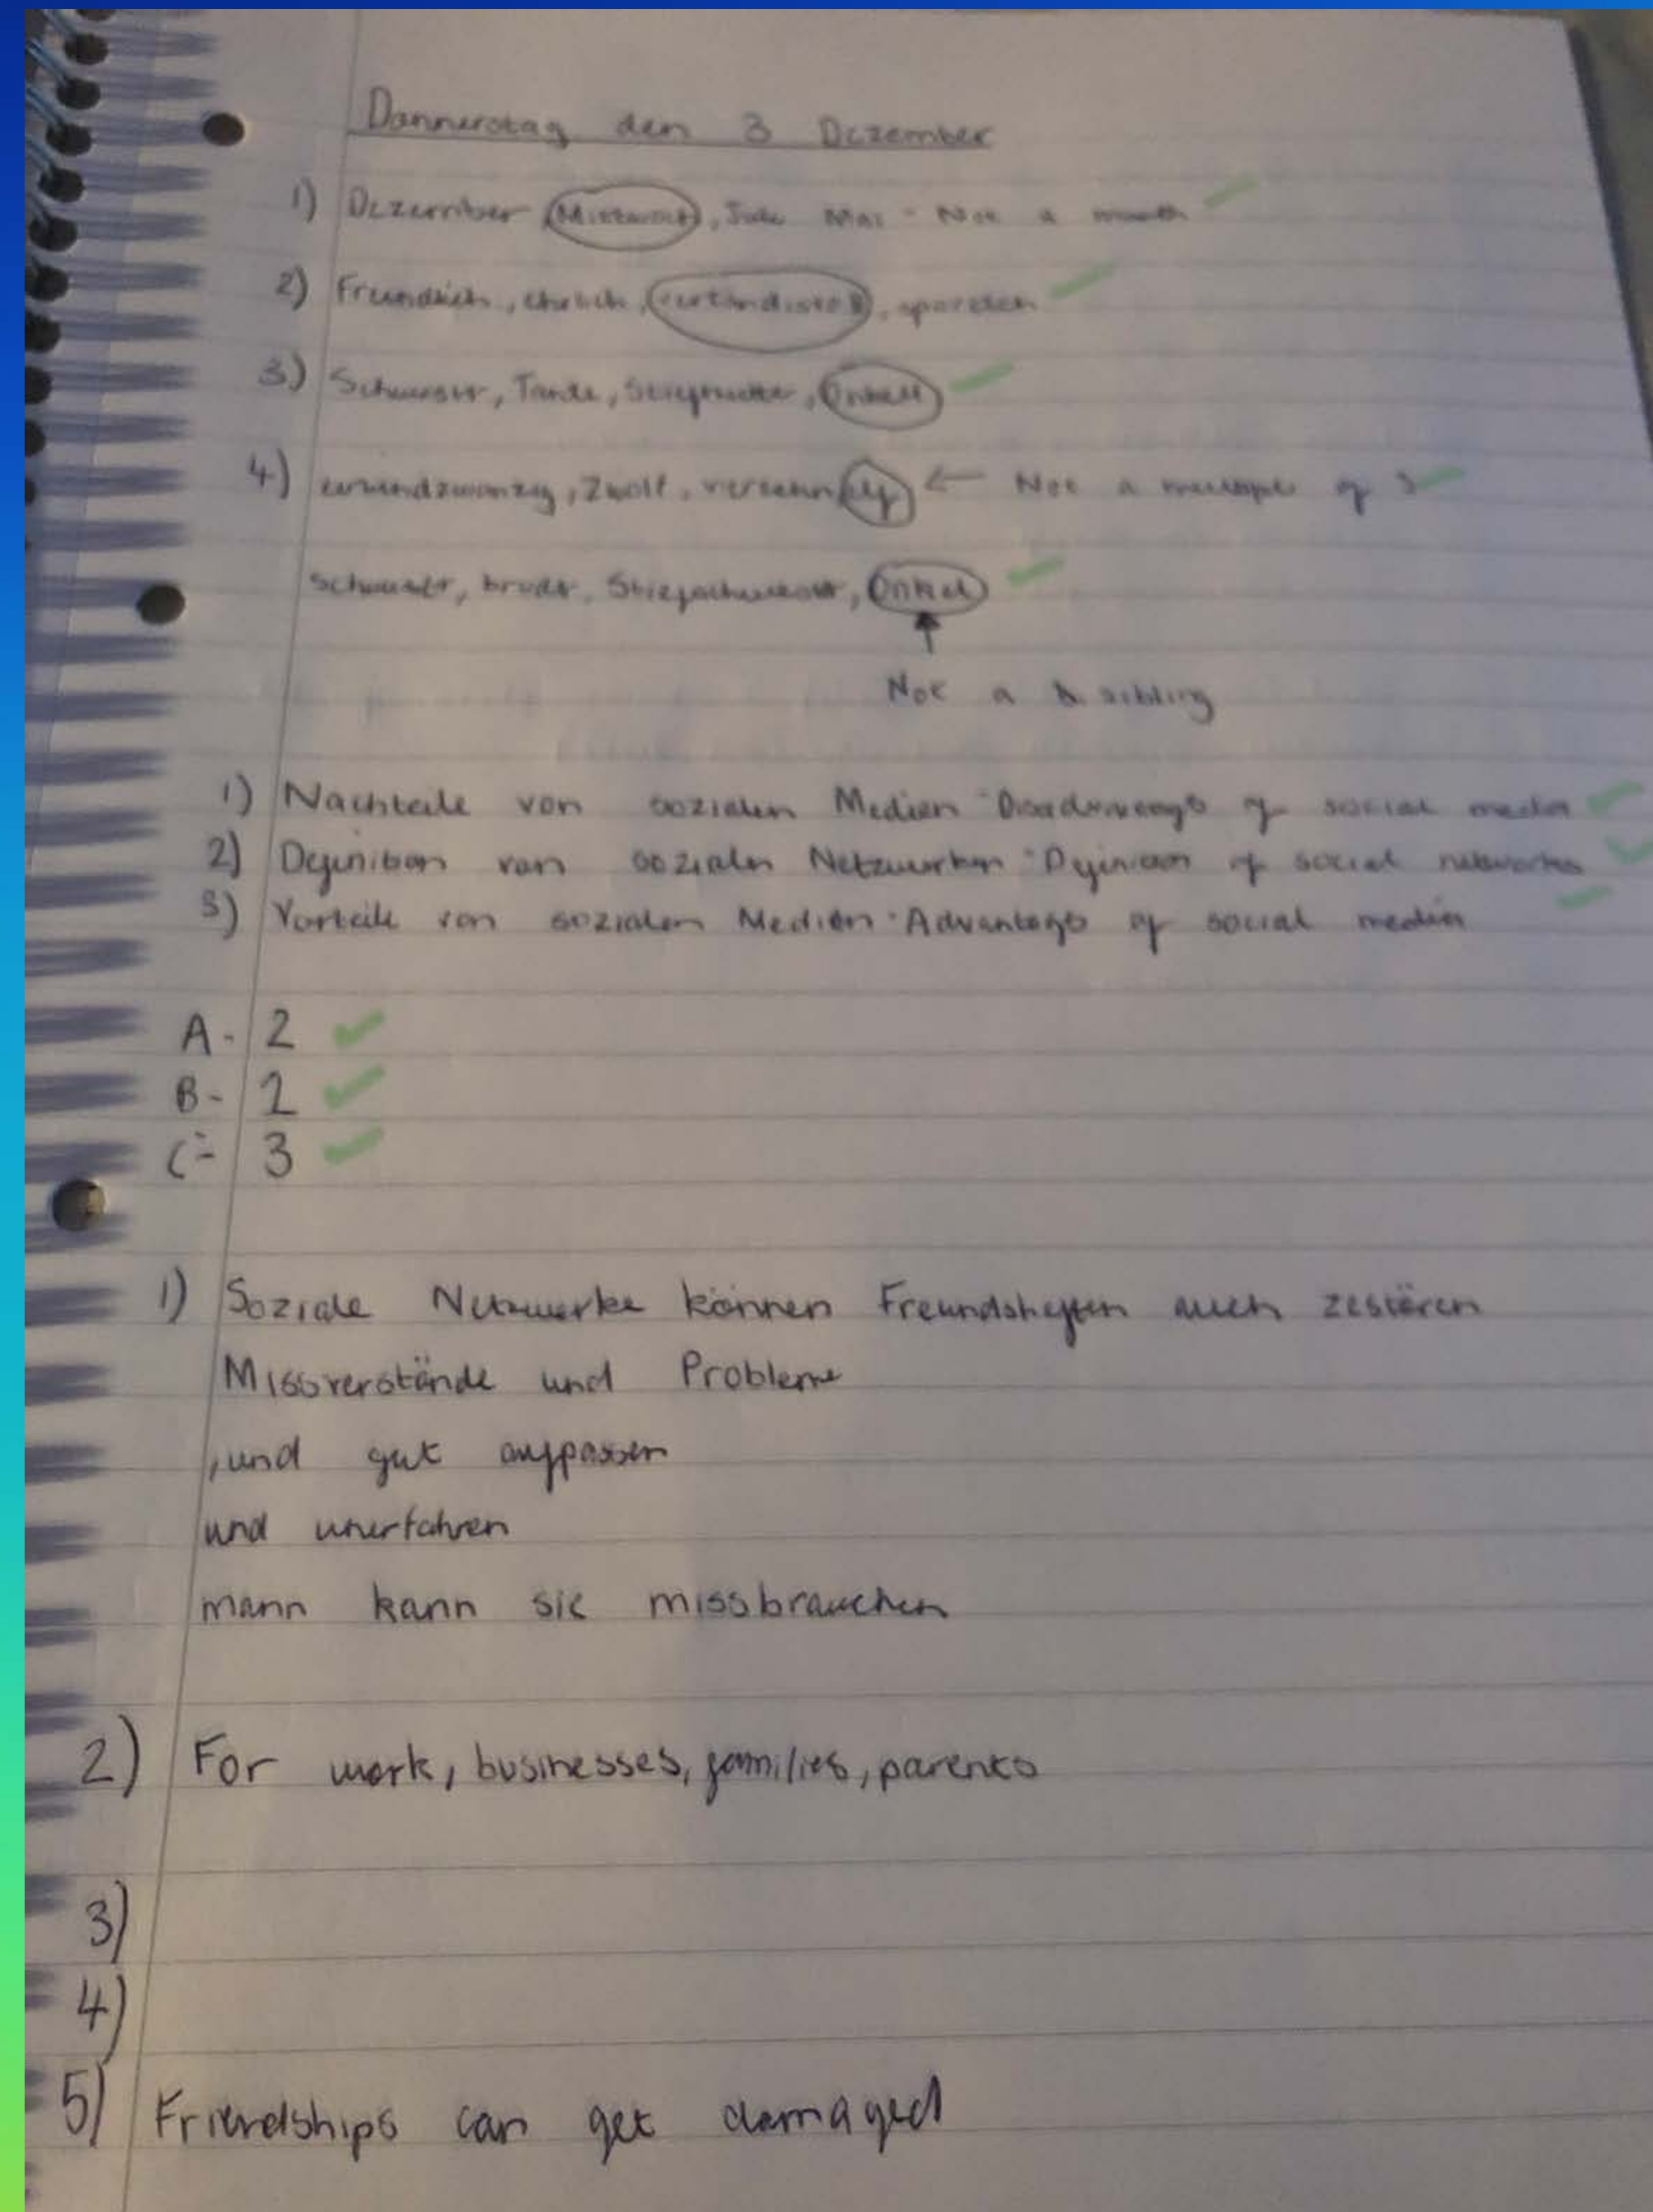 Donnerstag den 3 Dezember
1) Dezember Mittwoch, Juli Mai - Not a month
2) Freundlich, ehrlich,
3) Schwester, Tante, Onkel
4) Zwölf, elf ← Not a multiple of 3
Schwester, bruder, Onkel
Not a sibling
1) Nachteile von sozialen Medien - Disadvantages of social media
2) Definition von sozialen Netzwerken - Definition of social networks
3) Vorteile von sozialen Medien - Advantages of social media
A - 2
B - 1
C - 3
1) Soziale Netzwerke können Freundsheften auch zestören
Missverstände und Probleme
, und gut aufpassen
und unerfahren
mann kann sie missbrauchen
2) For work, businesses, families, parents
3)
4)
5) Friendships can get damaged